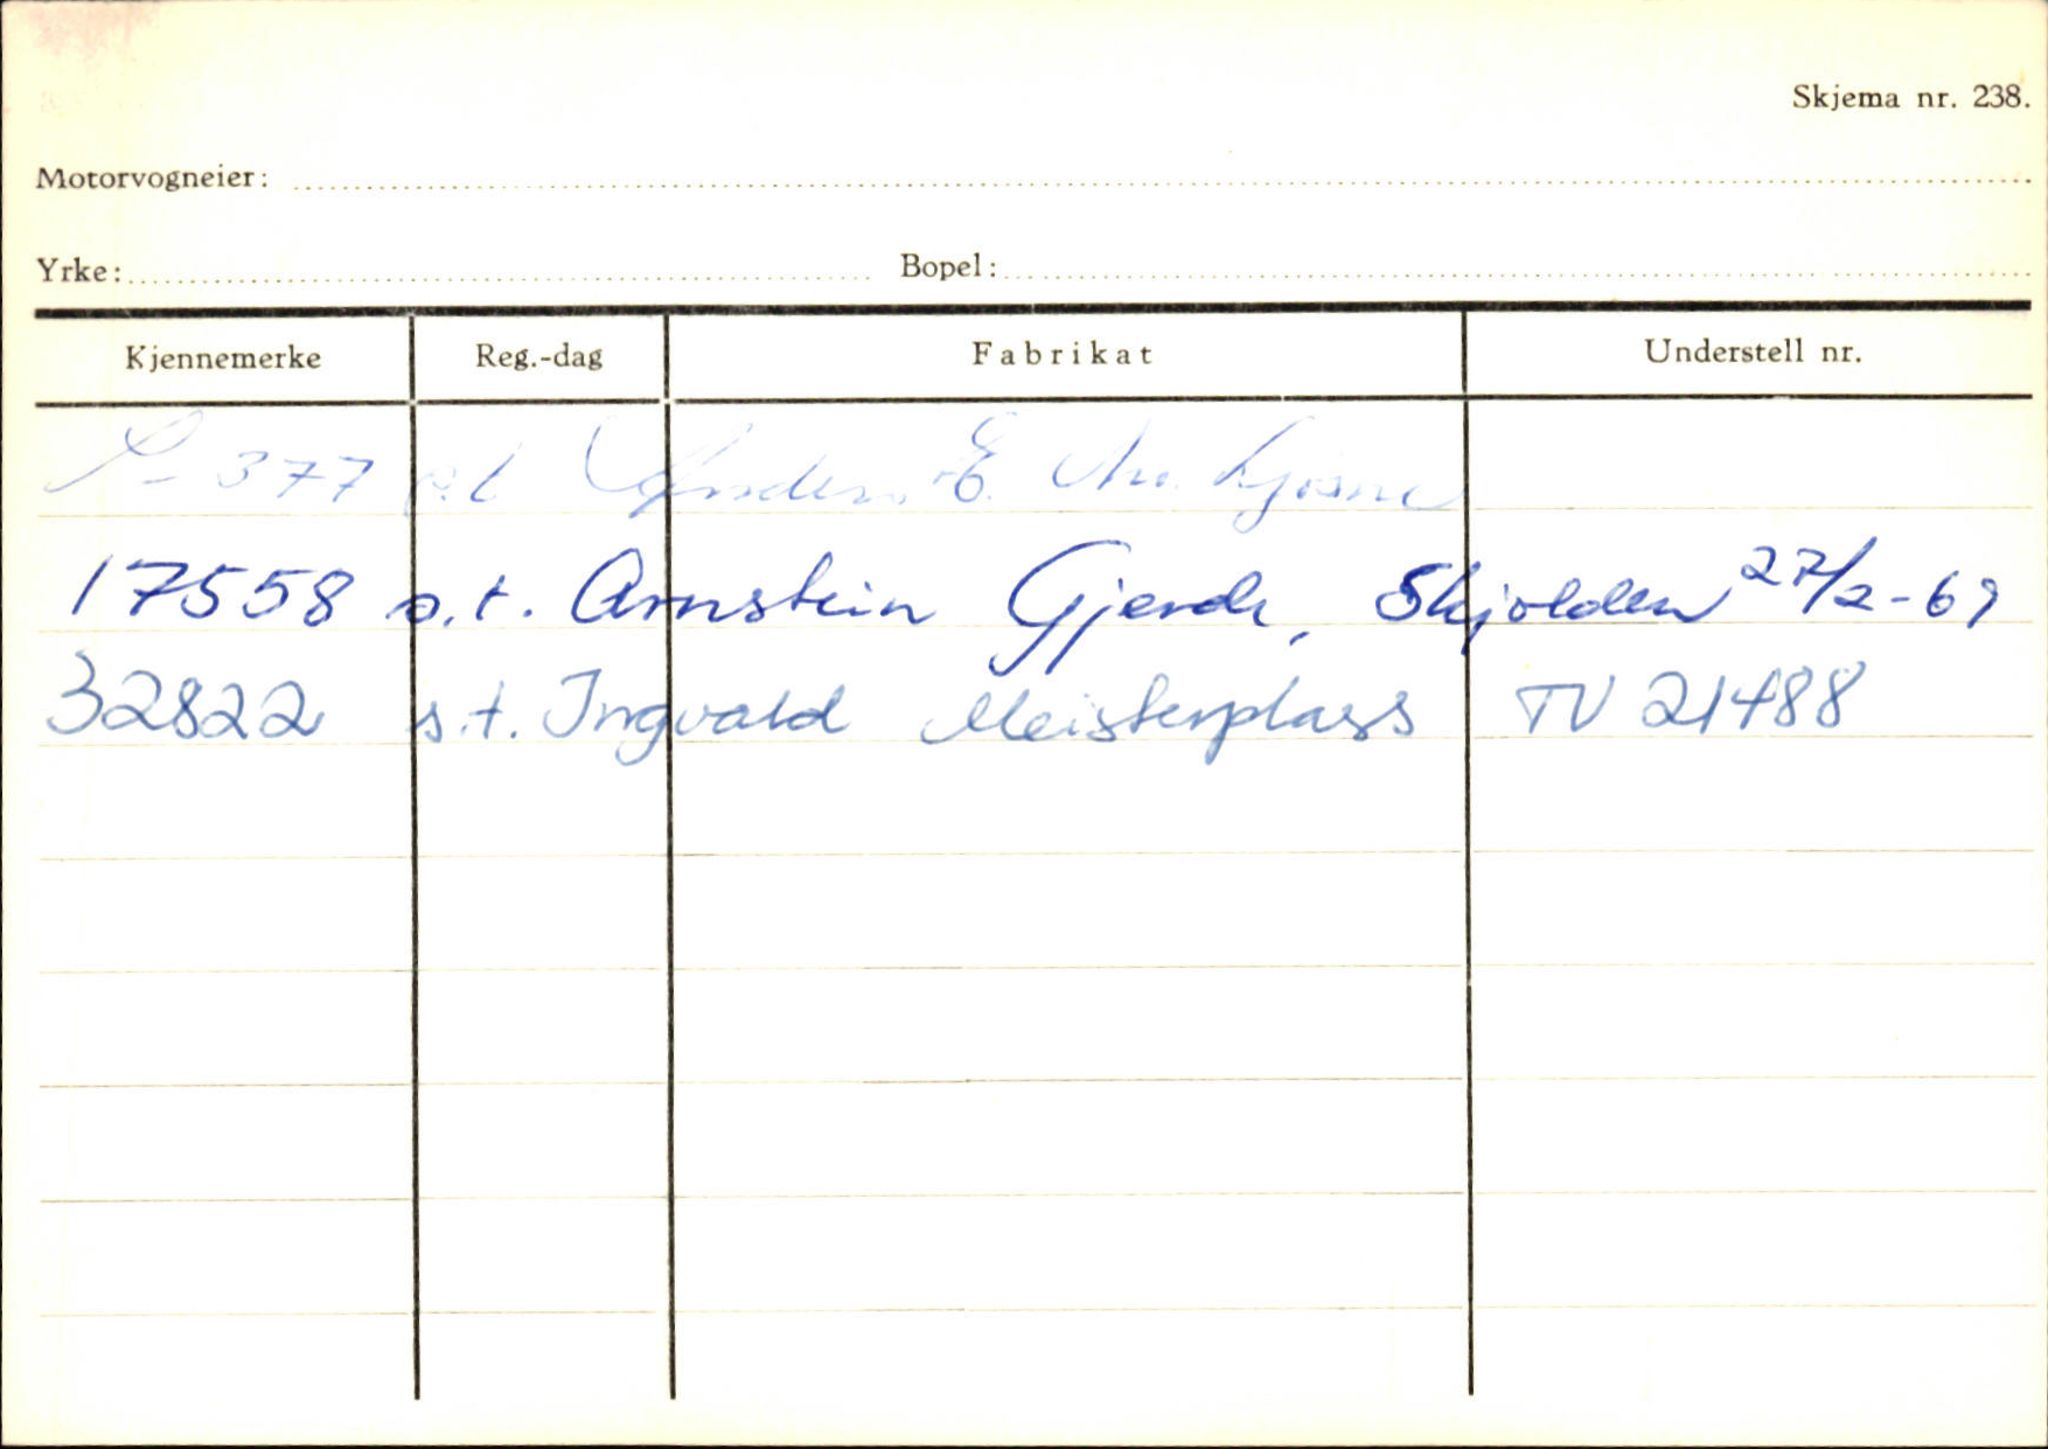 Skjema nr. 238.
Motorvogneier:
Yrke: Bopel:
Kjennemerke Reg.-dag Fabrikat Understell nr.
S-377 s.t. Anders E.
17558 s.t. Arnstein Gjerde, Skjolden 27/2-69
32822 s.t. Ingvald Meisterplass TV 21488